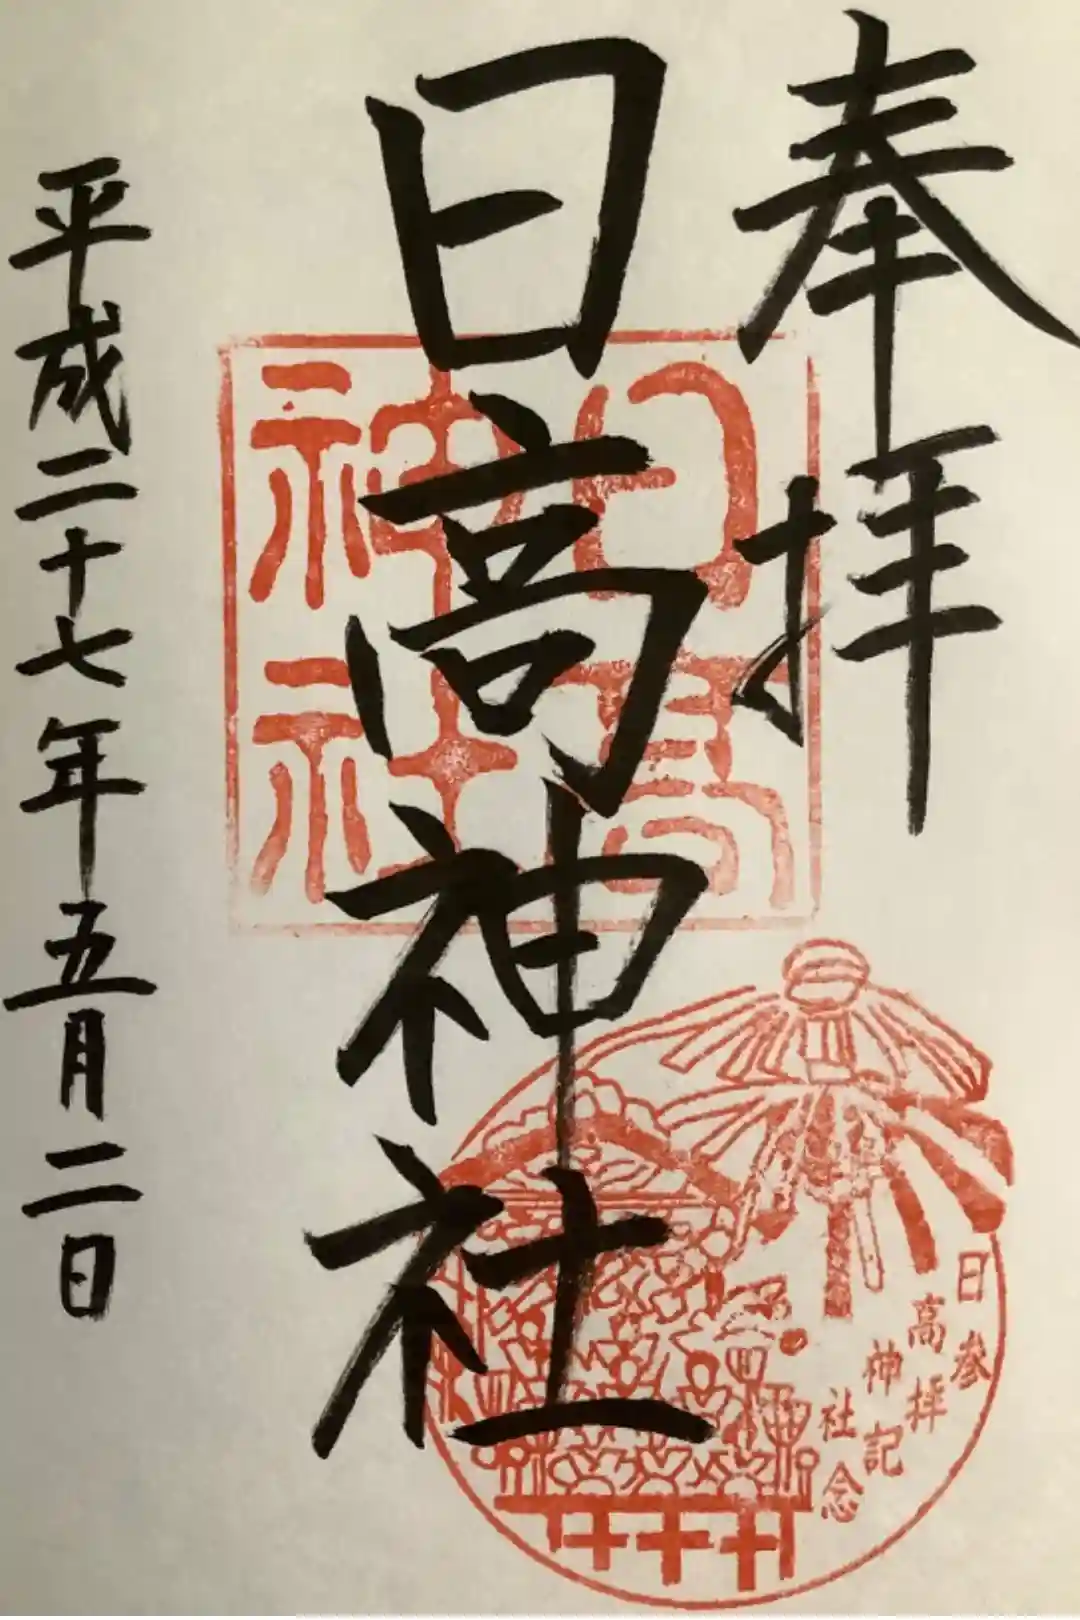 奉拝
日高神社
平成二十七年五月二日
日高
神社
日高神社
参拝記念